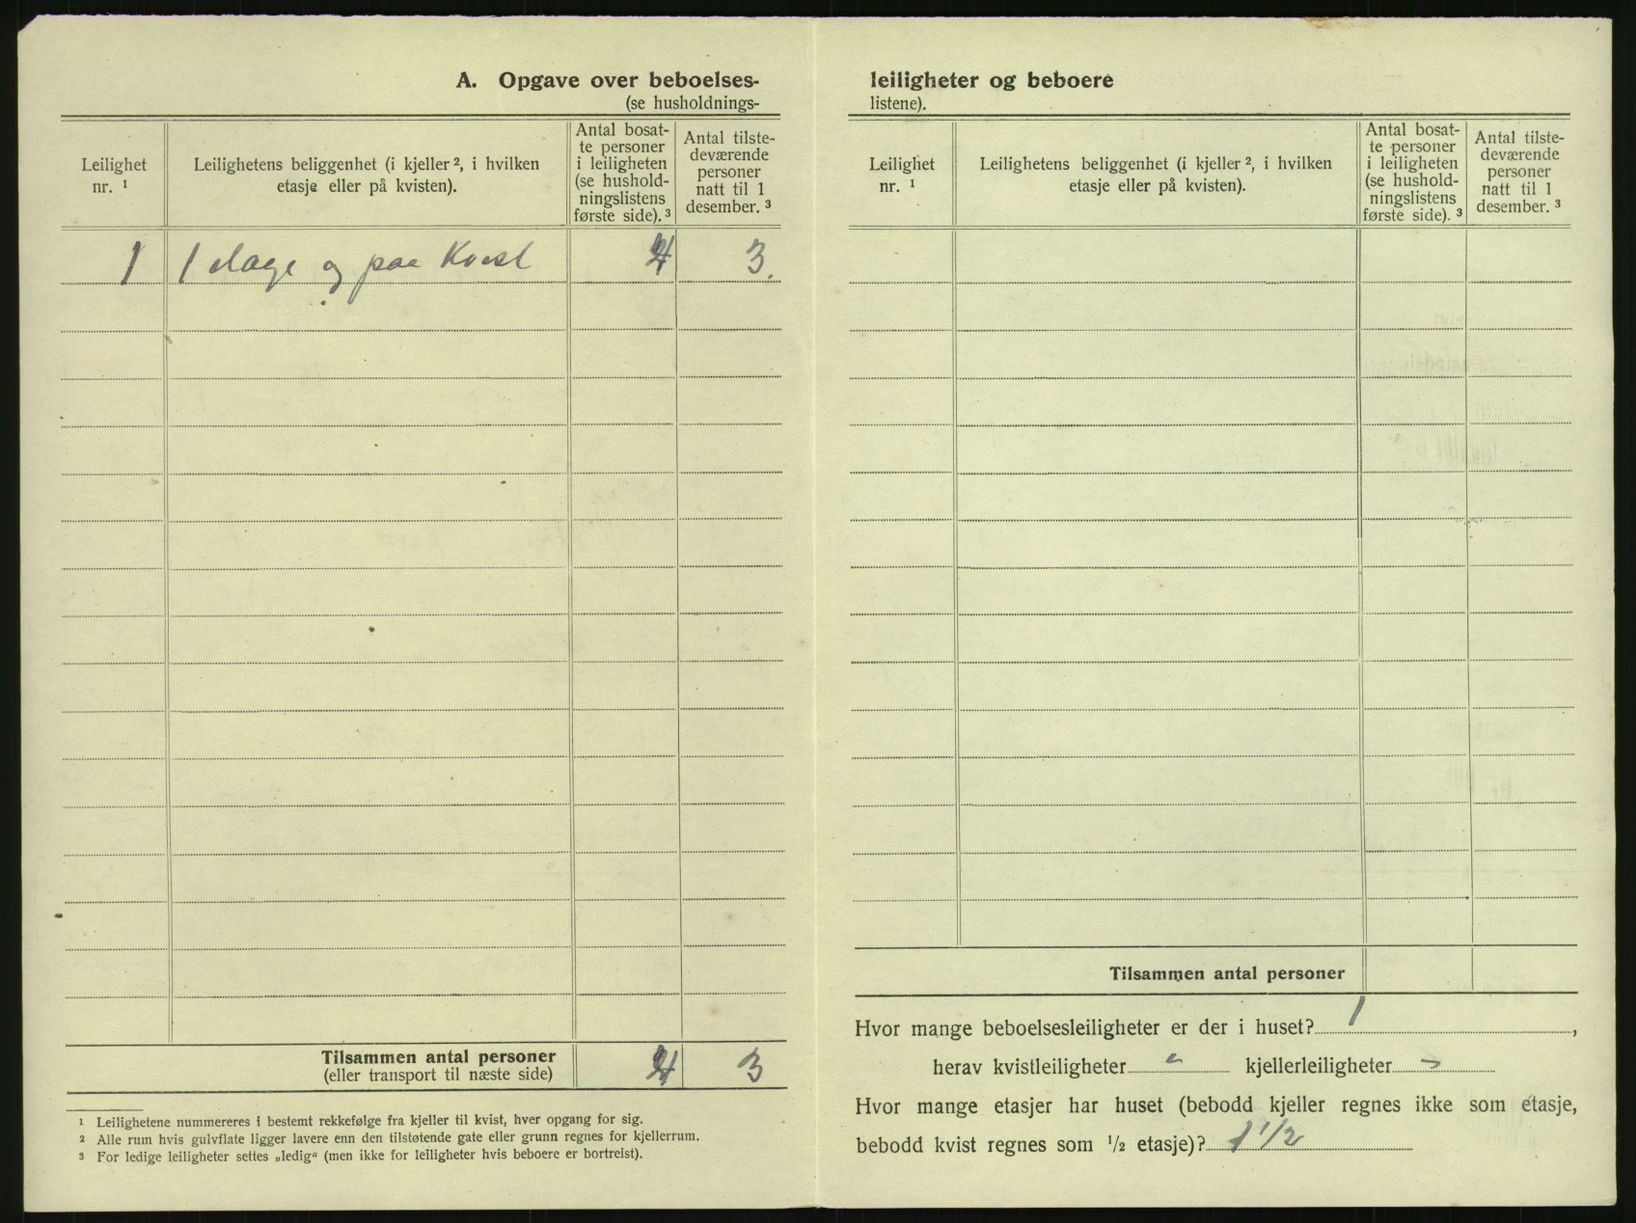 A. Opgave over beboelses-
(se husholdnings-
Leilighet nr. ¹
Leilighetens beliggenhet (i kjeller ², i hvilken etasje eller på kvisten).
Antal bosat-
te personer
i leiligheten
(se hushold-
ningslistens
første side). ³
Antal tilste-
deværende
personer
natt til 1
desember. ³
1 1 etage og paa Kvist 3.
Tilsammen antal personer 3
(eller transport til næste side)
¹ Leilighetene nummereres i bestemt rekkefølge fra kjeller til kvist, hver opgang for sig.
² Alle rum hvis gulvflate ligger lavere enn den tilstøtende gate eller grunn regnes for kjellerrum.
³ For ledige leiligheter settes „ledig“ (men ikke for leiligheter hvis beboere er bortreist).
leiligheter og beboere
listene).
Leilighet nr. ¹
Leilighetens beliggenhet (i kjeller ², i hvilken etasje eller på kvisten).
Antal bosat-
te personer
i leiligheten
(se hushold-
ningslistens
første side). ³
Antal tilste-
deværende
personer
natt til 1
desember. ³
Tilsammen antal personer
Hvor mange beboelsesleiligheter er der i huset? 1,
herav kvistleiligheter kjellerleiligheter
Hvor mange etasjer har huset (bebodd kjeller regnes ikke som etasje,
bebodd kvist regnes som ½ etasje)? 1 ½